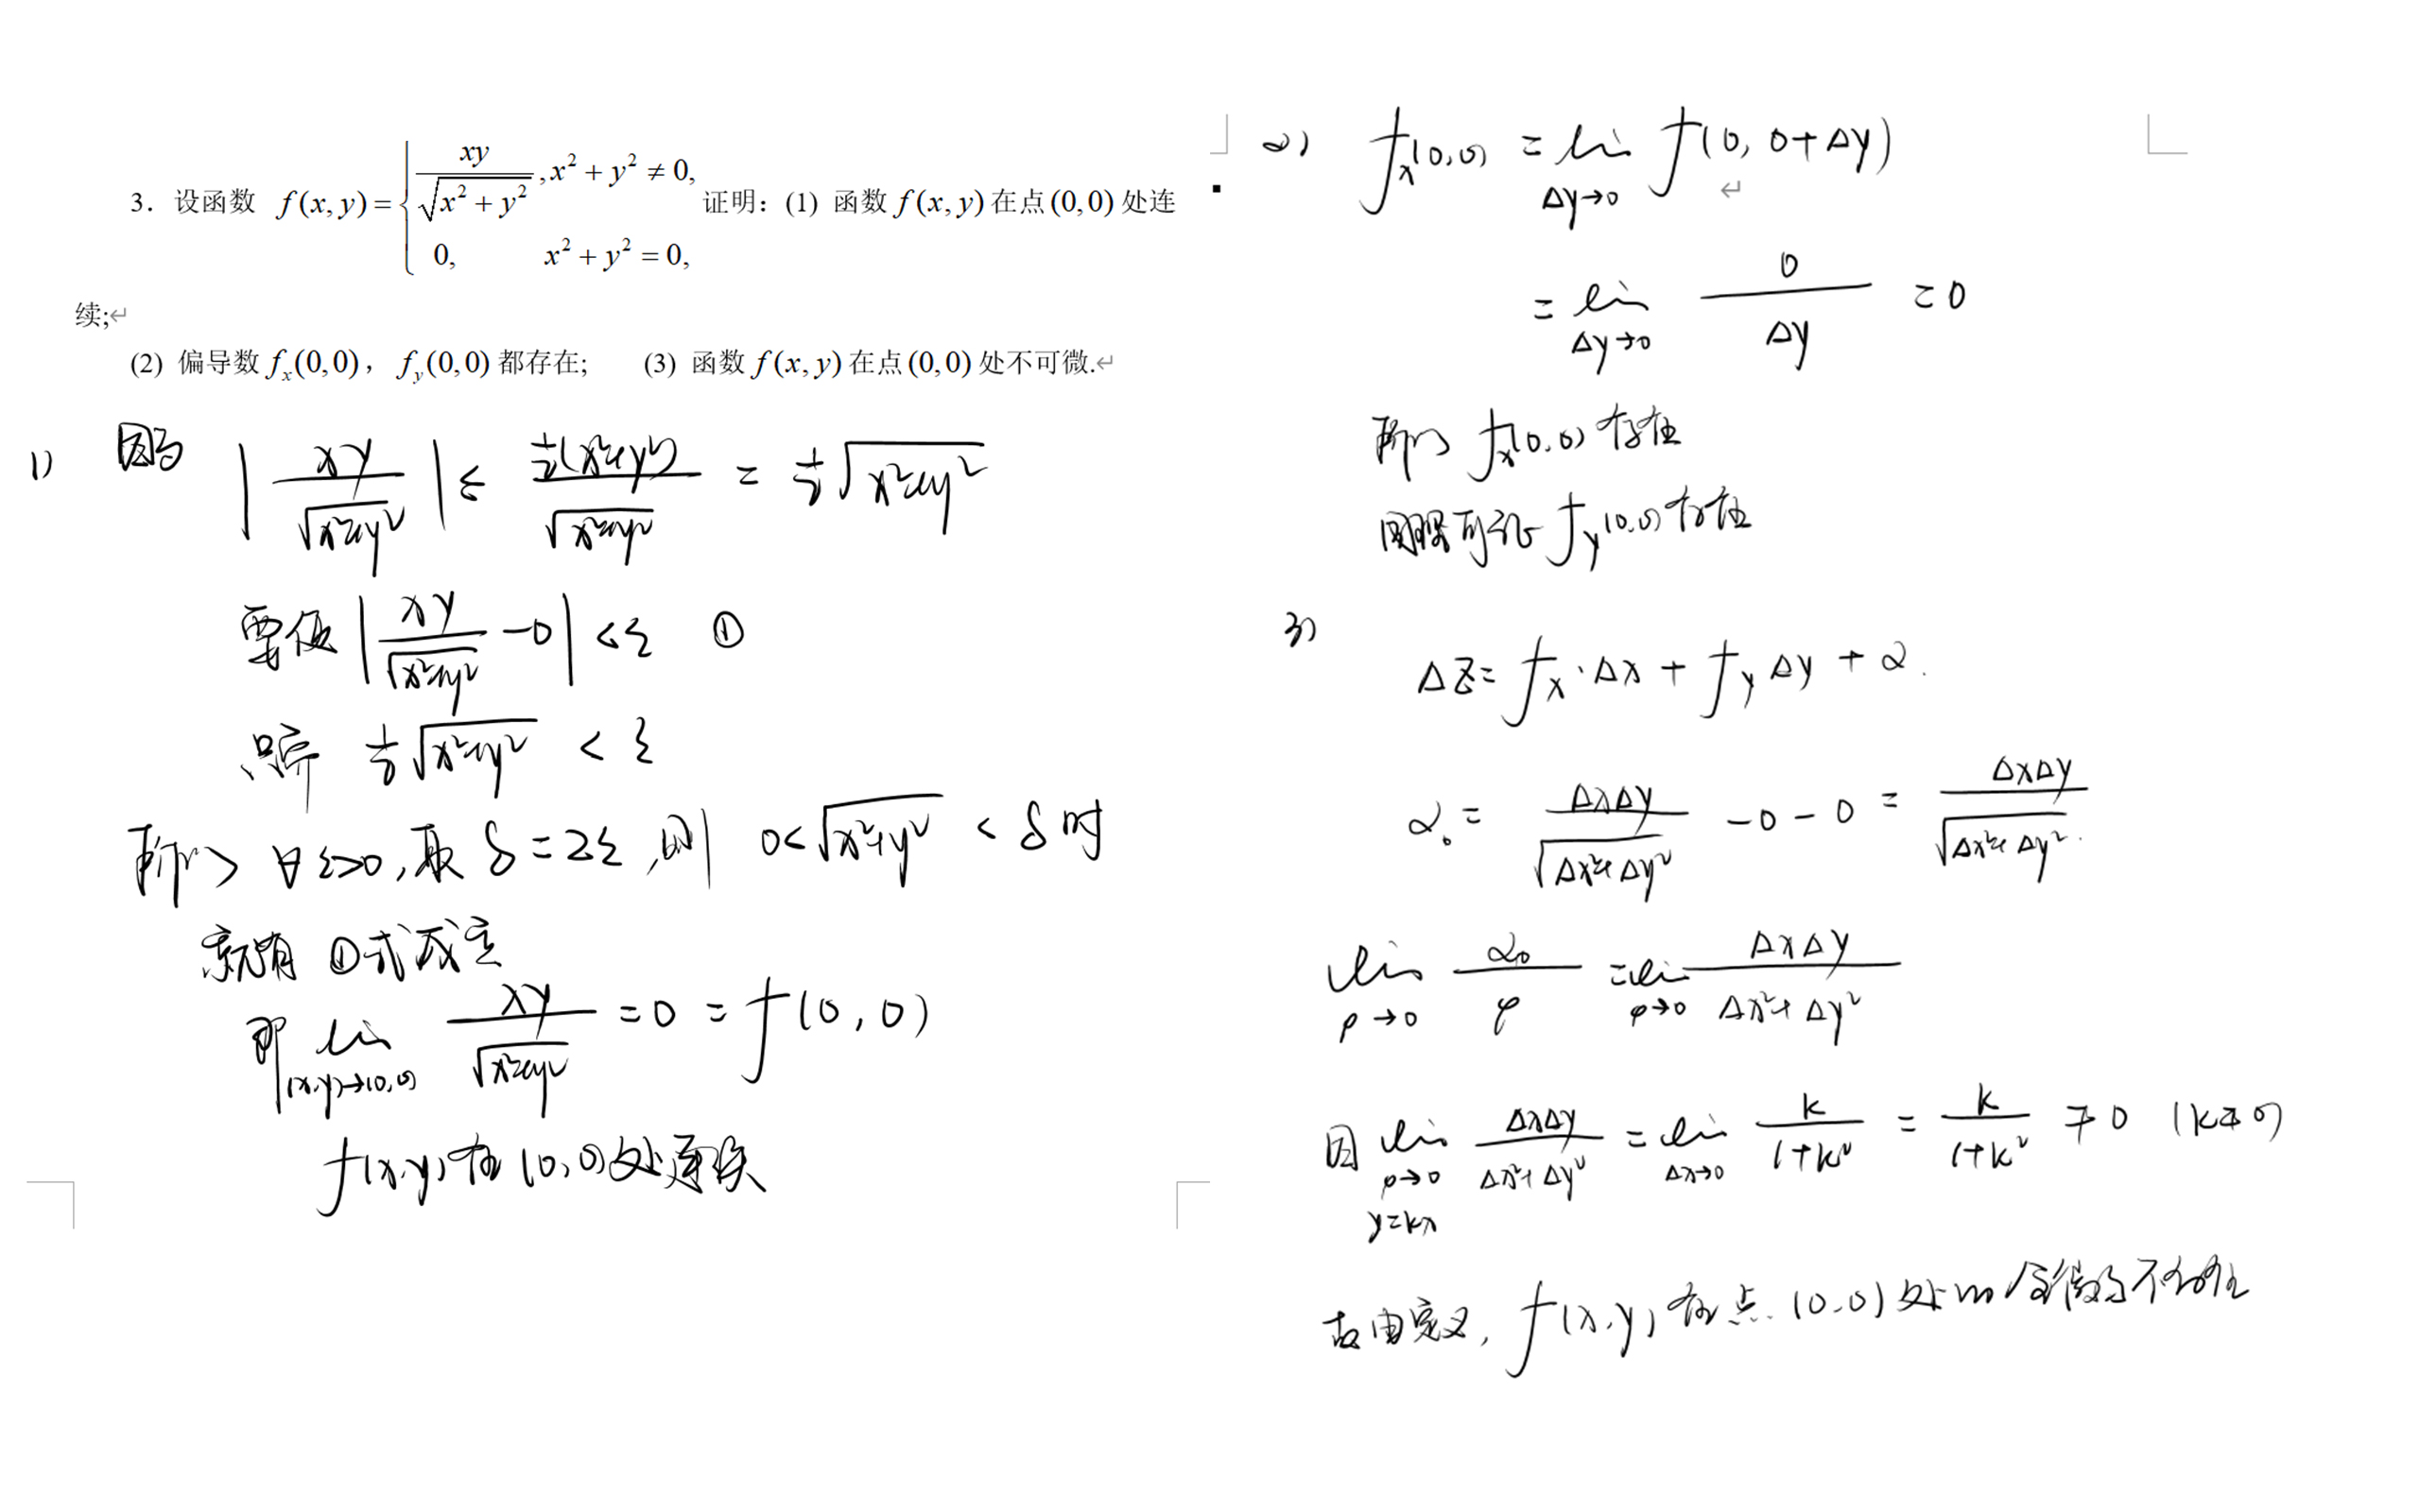 3. 设函数 f(x,y) = { xy/√(x²+y²), x²+y²≠0, 证明: (1) 函数 f(x,y) 在点(0,0) 处连
0, x²+y²=0,
续;↵
(2) 偏导数 fₓ(0,0), f_y(0,0) 都存在; (3) 函数 f(x,y) 在点(0,0) 处不可微.↵
1) 因为 |xy/√(x²+y²)| ≤ ½(x²+y²)/√(x²+y²) = ½√(x²+y²)
要使 |xy/√(x²+y²) - 0| < ε ①
只需 ½√(x²+y²) < ε
所以 ∀ε>0, 取 δ=2ε, 则 0<√(x²+y²) < δ 时
就有 ①式成立
即 lim (x,y)→(0,0) xy/√(x²+y²) = 0 = f(0,0)
f(x,y) 在 (0,0) 处连续
2) fₓ(0,0) = lim Δy→0 f(0, 0+Δy)
↵
= lim Δy→0 0/Δy = 0
所以 fₓ(0,0) 存在
同理可证 f_y(0,0) 存在
3)
ΔZ = fₓ·Δx + f_y Δy + α.
α. = ΔxΔy/√(Δx²+Δy²) - 0 - 0 = ΔxΔy/√(Δx²+Δy²).
lim ρ→0 α₀/ρ = lim ρ→0 ΔxΔy/(Δx²+Δy²)
因 lim ρ→0 y=kx ΔxΔy/(Δx²+Δy²) = lim Δx→0 k/(1+k²) = k/(1+k²) ≠ 0 (k≠0)
故由定义, f(x,y) 在点 (0,0) 处的全微分不存在